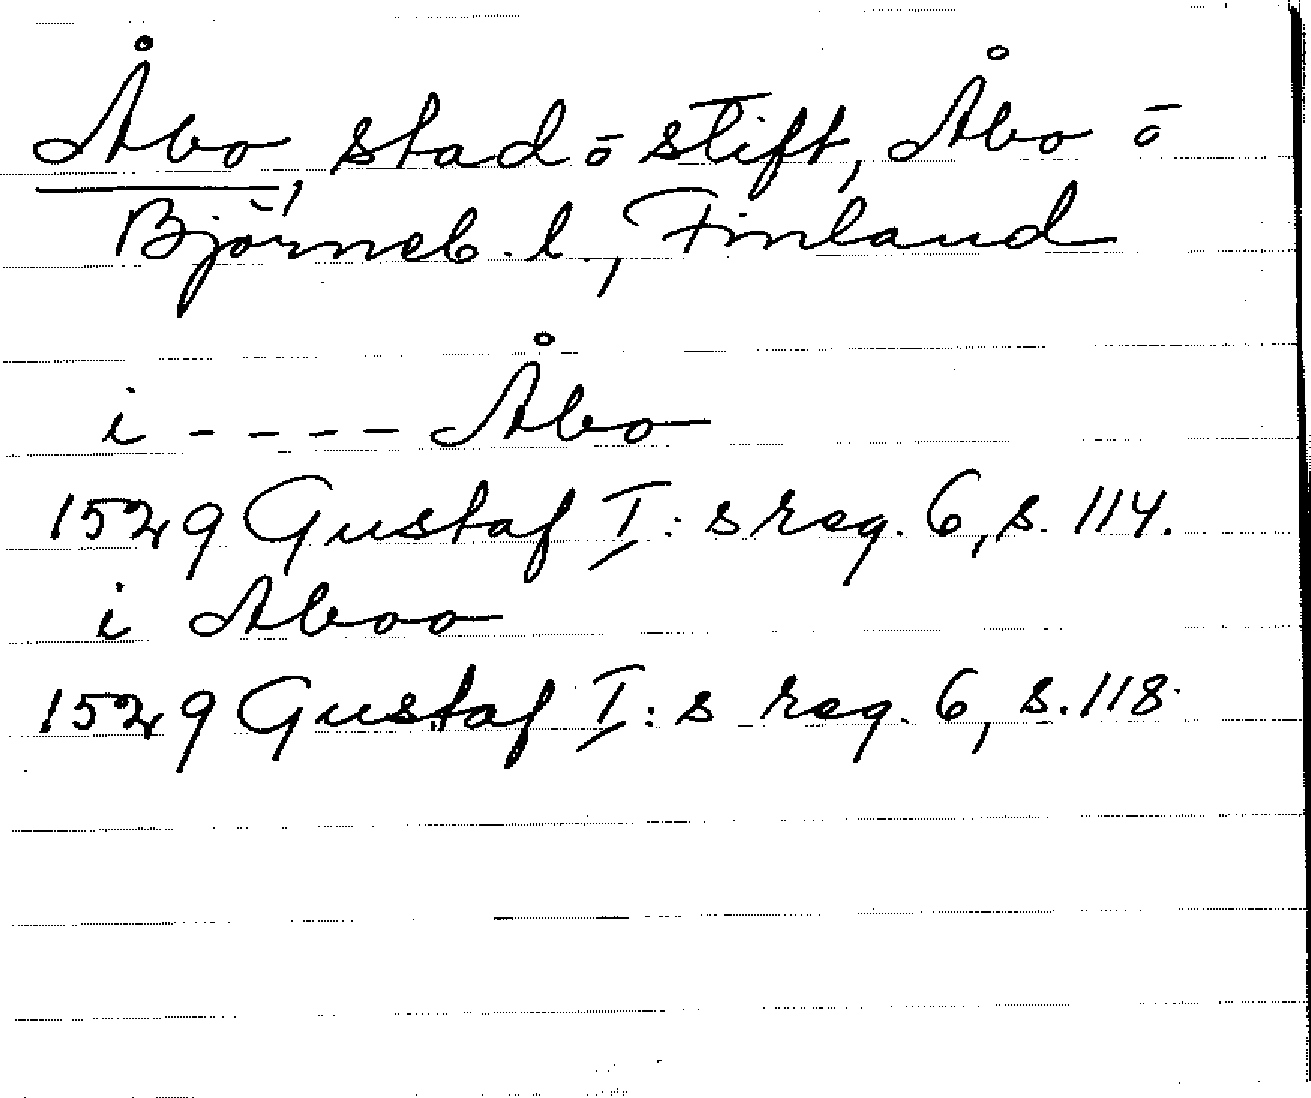 Åbo, stad ō stift, Åbo ō
Björneb. l., Finland
i - - - - Åbo
1529 Gustaf I:s reg. 6, s. 114.
i Aboo
1529 Gustaf I:s reg. 6, s. 118.